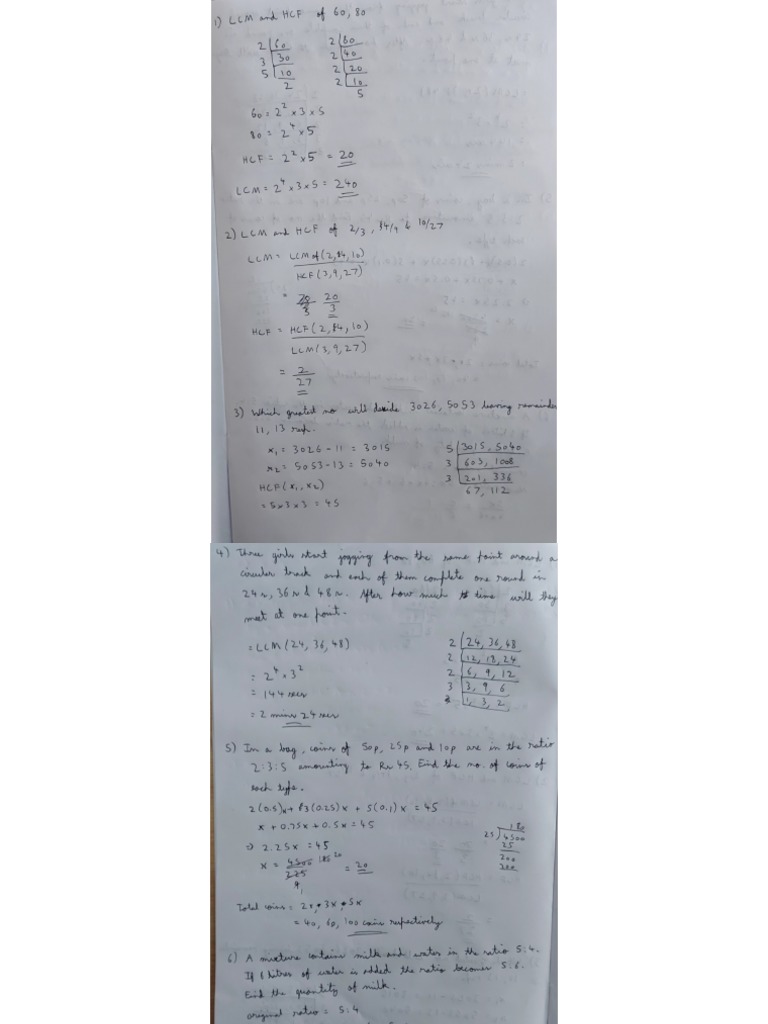 1) LCM and HCF of 60, 80
2 60 2 80
3 30 2 40
5 10 2 20
2 2 10
5
60 = 2² × 3 × 5
80 = 2⁴ × 5
HCF = 2² × 5 = 20
LCM = 2⁴ × 3 × 5 = 240
2) LCM and HCF of 2/3, 84/9 & 10/27
LCM = LCM of (2, 84, 10)
HCF (3, 9, 27)
= 20
3
HCF = HCF (2, 84, 10)
LCM (3, 9, 27)
= 2
27
3) Which greatest no will divide 3026, 5053 leaving remainder
11, 13 resp.
x₁ = 3026 - 11 = 3015 5 3015, 5040
x₂ = 5053 - 13 = 5040 3 603, 1008
HCF (x₁, x₂) 3 201, 336
= 5×3×3 = 45 67, 112
4) Three girls start jogging from the same point around a
circular track and each of them complete one round in
24s, 36s & 48s. After how much time will they
meet at one point.
= LCM (24, 36, 48) 2 24, 36, 48
2 12, 18, 24
= 2⁴ × 3² 2 6, 9, 12
= 144 secs 3 3, 9, 6
= 2 mins 24 secs 1, 3, 2
5) In a bag, coins of 50p, 25p and 10p are in the ratio
2:3:5 amounting to Rs 45. Find the no. of coins of
each type.
2(0.5)x + 3(0.25)x + 5(0.1)x = 45
x + 0.75x + 0.5x = 45 180
⇒ 2.25x = 45 25 4500
x = 4500 180 20 = 20 25
225 200
9 1 200
Total coins = 2x, 3x, 5x
= 40, 60, 100 coins respectively
6) A mixture contains milk and water in the ratio 5:4.
If litres of water is added the ratio becomes 5:6.
Find the quantity of milk.
original ratio = 5:4